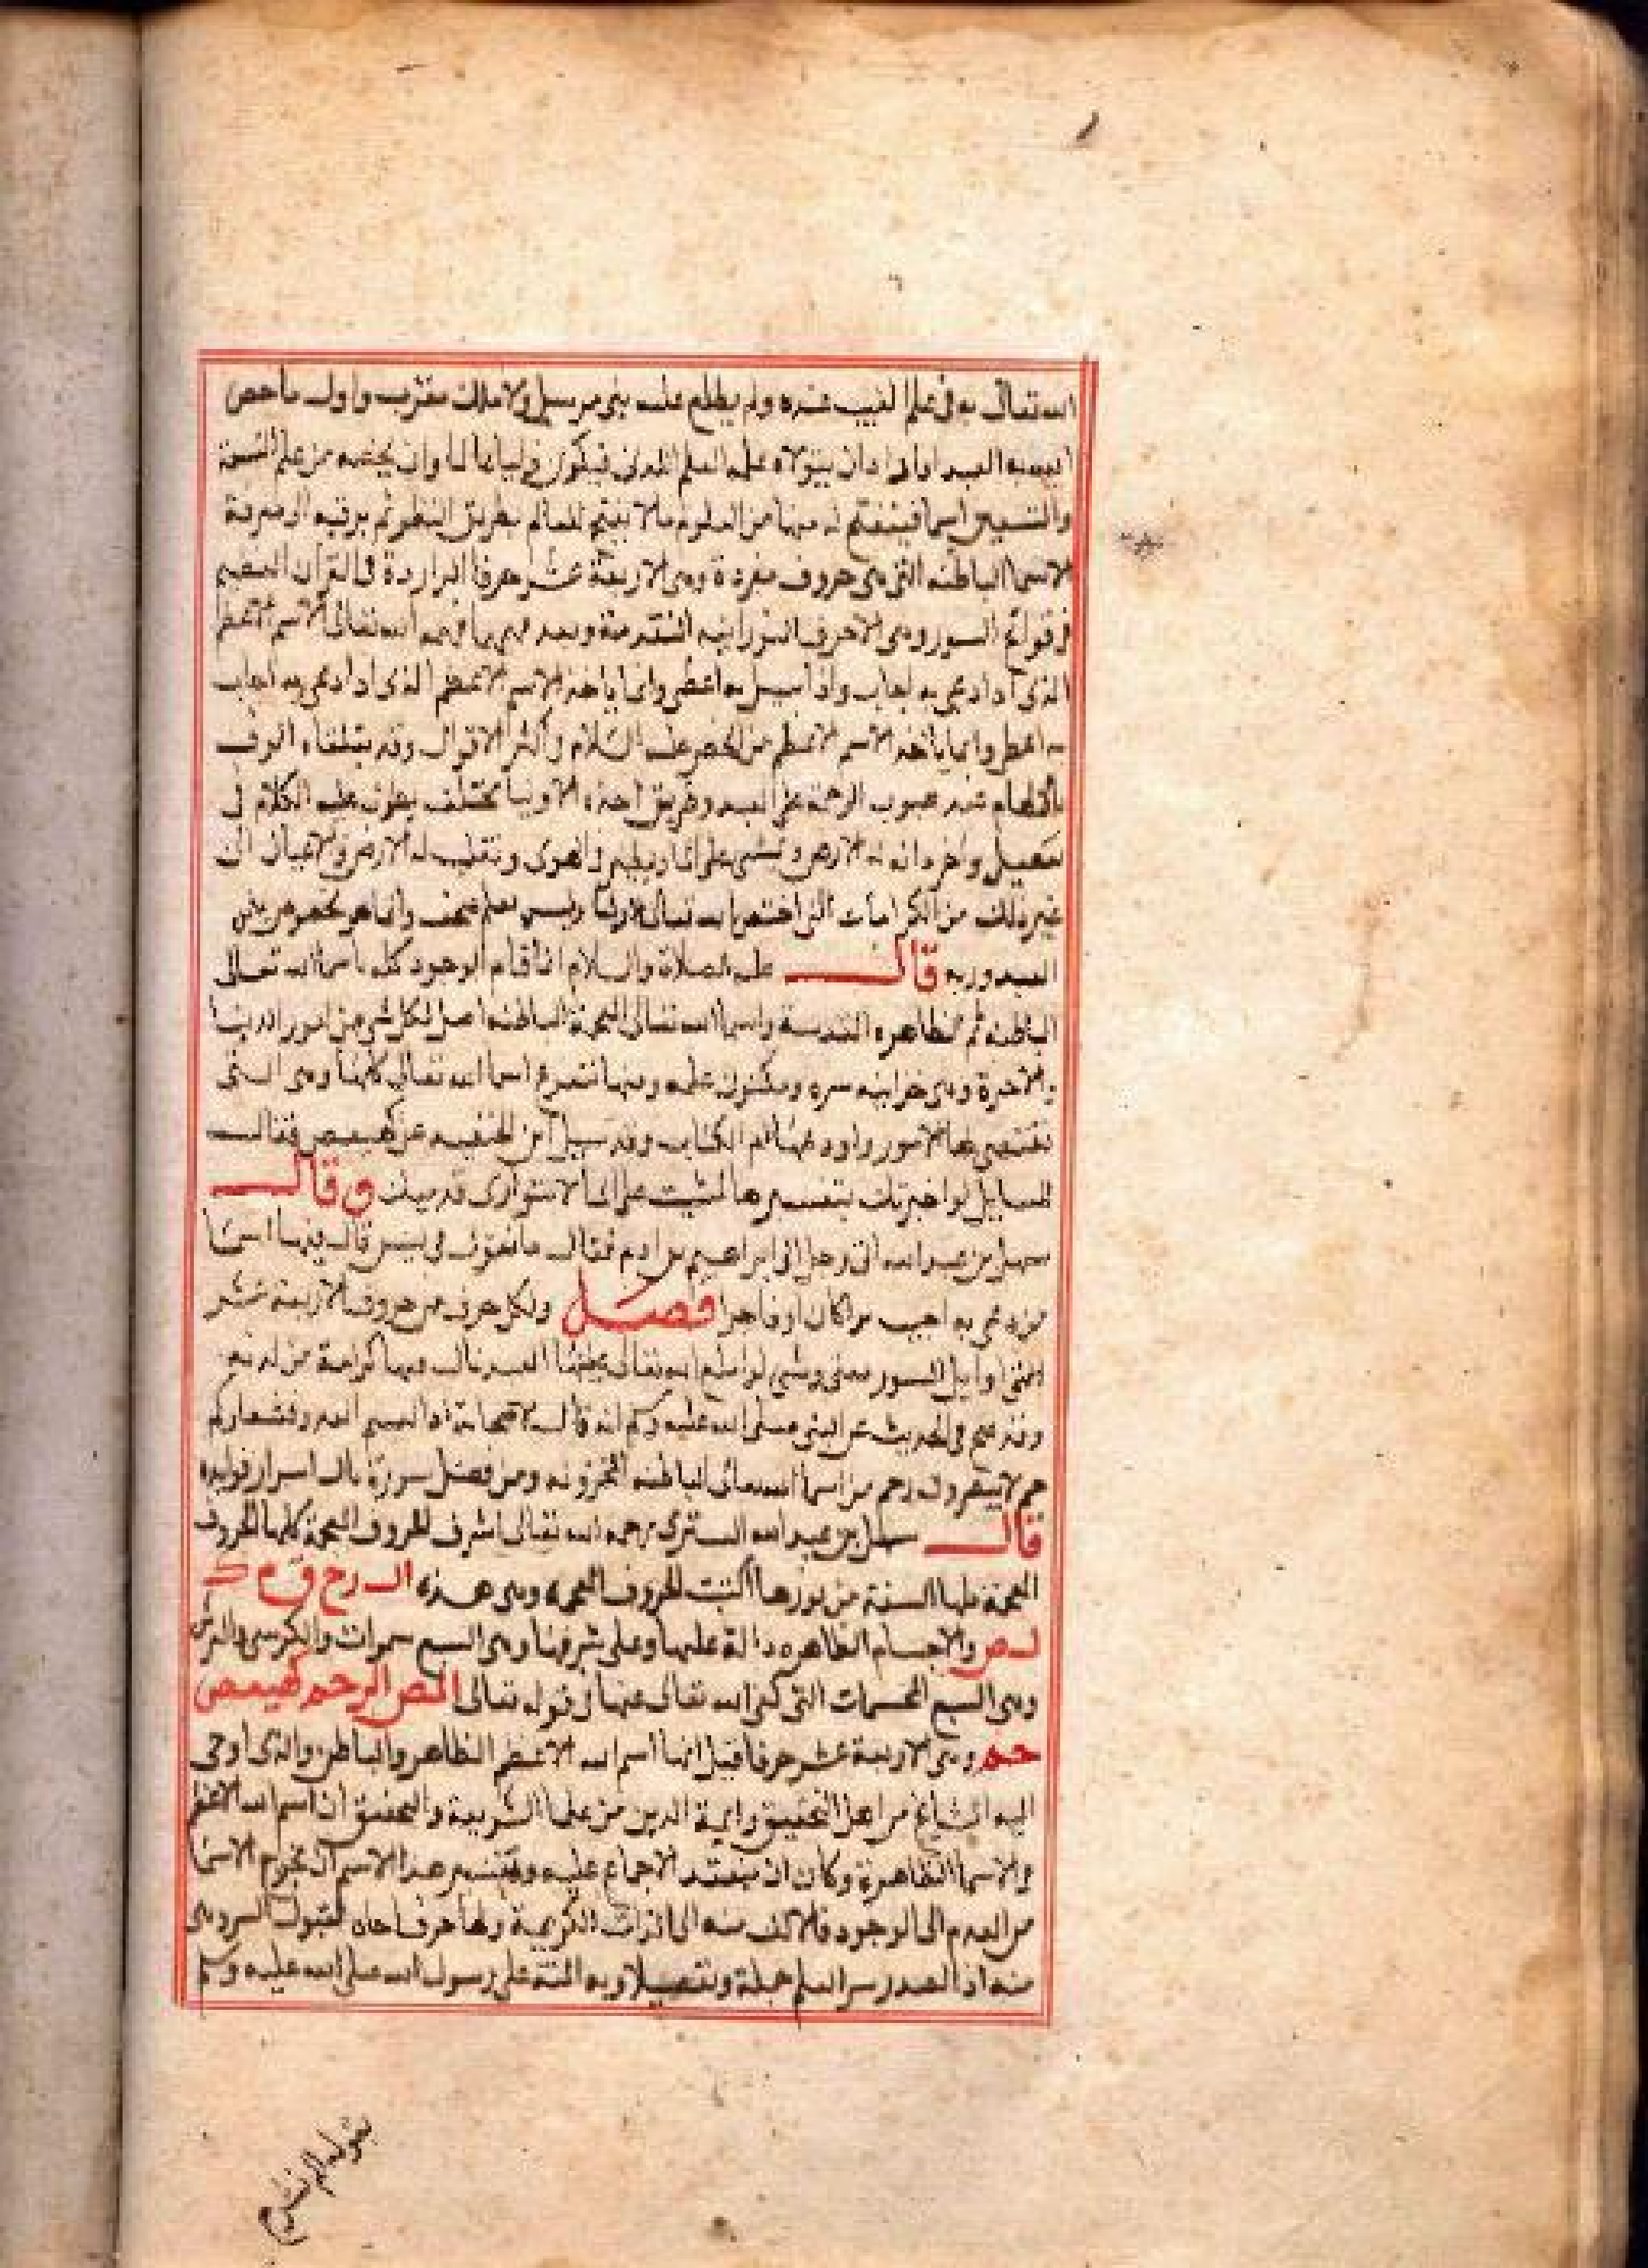 الله تعالى به في علم الغيب عنده ولم يطلع عليه نبي مرسل ولا ملك مقرب واول ما خص
الله به العبد اذا اراد ان يتولاه علمه العلم اللدني فيكون وليا عالما وان يخصه من علم
والنبيين اسما فينفتح له منها من العلوم ما لا يفتح للعالم بطريق النظر ثم يرقيه الى معرفة
الاسما الباطنه التي هي حروف مفردة وهي الاربعة عشر حرفا الواردة في القران العظيم
في فواتح السور وهي الاحرف النورانيه المتقدمة وبعد فهمها فهمه الله تعالى الاسم الاعظم
الذي اذا دعي به اجاب واذا سيل به اعطى وانما ياخذ الاسم الاعظم الذي اذا دعي به اجاب
به اعطى وانما ياخذ الاسم الاعظم من الخضر عليه السلام في اكثر الاقوال وقد يتلقاه
بالالهام عند هبوب الرحمة على العبد وطريق اخذه الاوليا مختلف يطول عليه الكلام في
تفصيل واخر دانه له الارض ويمشي على الما ويطير في الهوى وتنقلب له الارض والاعيان الى
غير ذلك من الكرامات التي اختص الله تعالى بها وليس بعلم صحف وانما هو مخصوص بين
العبد وربه قال عليه الصلاة والسلام انما قام الوجود كله باسما الله تعالى
الباطنه ثم الظاهره المقدسة واسما الله تعالى المعجمة الباطنه اصل لكل شي من امور الدنيا
والاخرة وهي خزاينه سره ومكنون علمه ومنها تتفرع اسما الله تعالى كلها وهي التي
تقتضي بها الامور واودعها ام الكتاب وقد سيل ابن الحنفيه عن كهيعص فقال
للسايل لو اخبرتك بتفسيرها لمشيت على الما لا تتوارى قدميك وقال
سهل بن عبد الله اتى رجل الى ابراهيم بن ادهم فقال ما تقول في يس قال فيها اسما
من دعي به اجيب برا كان او فاجرا فصل ولكل حرف من حروف الاربعة عشر
التي اوايل السور معنى وشي لو اطلع الله تعالى عليها العبد نال فيها كرامة من لدنه
وقد صح في الحديث عن النبي صلى الله عليه وسلم انه قال لاصحابه اذا لقيتم العدو فشعاركم
حم لا ينصرون وحم من اسما الله تعالى الباطنه المخزونه ومن فضل سورة نال اسرار فوايده
قال سهل بن عبد الله التستري رحمه الله تعالى اشرف الحروف المعجمة كلها الحروف
المعجمة كلها الستة من نورها اكتبت الحروف المعجمه وهي هذه ال ر ح ق م ك
ل ه ص والاجسام الظاهره دالة عليها وعلى شرفها وهي السبع سموات والكرسي والعرش
وهي السبع المحسمات التي كنى الله تعالى عنها في قوله تعالى المص الر حم كهيعص
حم وهي الاربعة عشر حرفا قيل انها اسم الله الاعظم الظاهر والباطن والذي اوحى
اليه المشايخ من اهل التحقيق وايمة الدين من علما الشريعة والتحقيق ان اسم الله الاعظم
في الاسما الظاهرة وكان ان ينعقد الاجماع عليه وتفسير هذا الاسم ان مخرج الاسما
من العدم الى الوجود فالالف منه الى الذات الكريمة والها حرف حان لقبول السر وهي
منه اذ الصدر سر العلم جملة وتفصيلا وبه المنة على رسول الله صلى الله عليه وسلم
بقوله الم نشرح